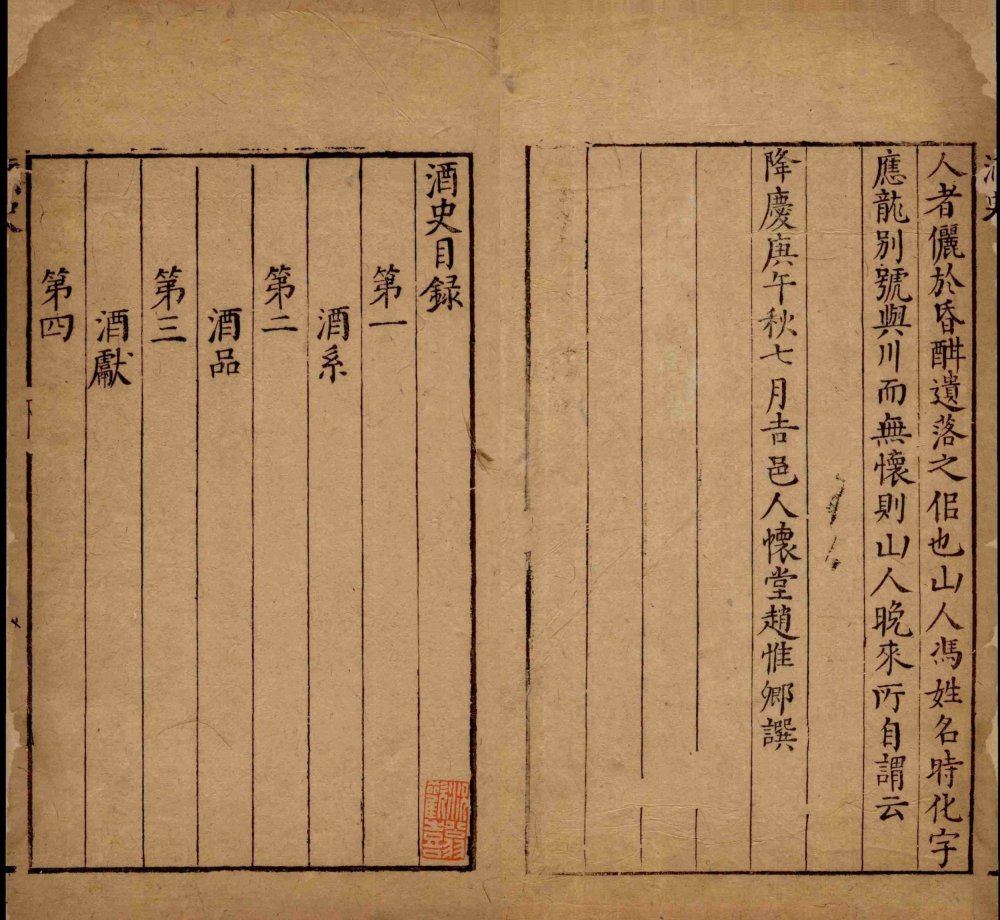 人者儷於昏酣遺落之侶也山人馮姓名時化字
應龍别號與川而無懷則山人晚來所自謂云
隆慶庚午秋七月吉邑人懷堂趙惟卿譔
酒史目録
第一
酒系
第二
酒品
第三
酒獻
第四